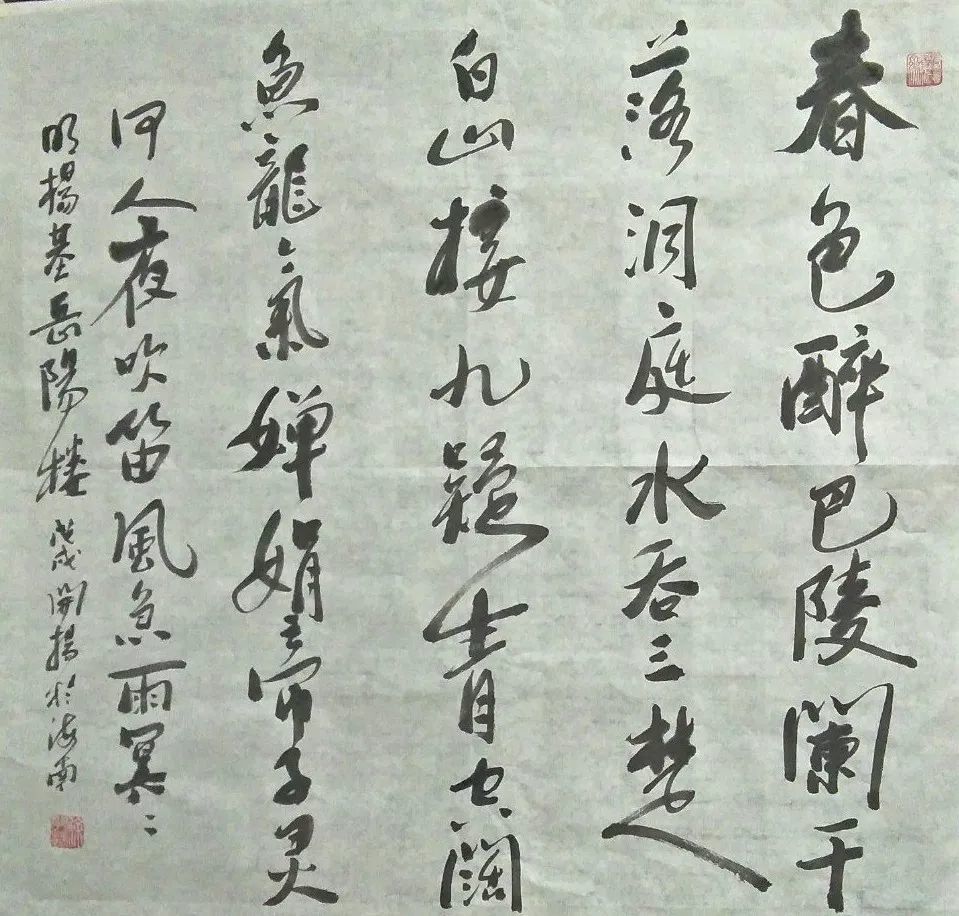 春色醉巴陵闌干
落洞庭水吞三楚
白山接九疑青空闊
魚龍氣婵娟帝子灵
何人夜吹笛風急雨冥〻
明楊基岳陽樓 戊戌開揚於海南